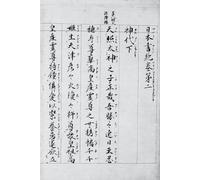 日本書紀卷第二
神代下
天照太神之子正哉吾勝々速日天忍
穗耳尊娶高皇産靈尊之女栲幡千千
姫生天津彦々火瓊々杵尊故皇祖高
皇産靈尊特鍾憐愛以崇養焉遂欲立